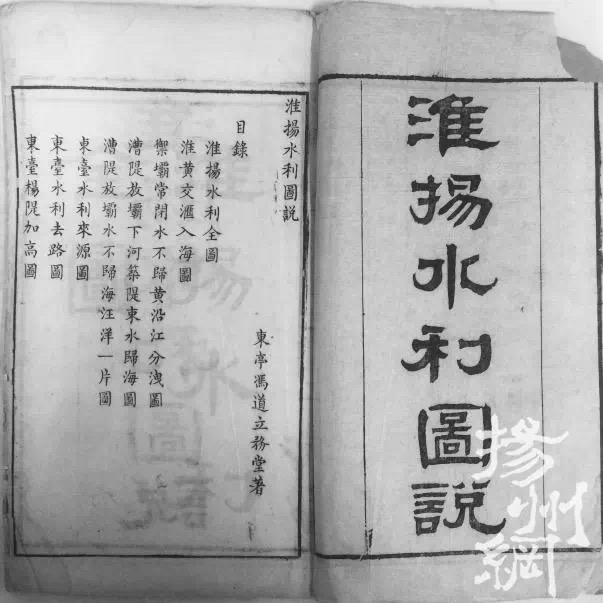 淮揚水利圖說
淮揚水利圖說
東亭馮道立務堂著
目錄
淮揚水利全圖
淮黃交滙入海圖
禦壩常閉水不歸黃沿江分洩圖
漕隄放壩下河築隄束水歸海圖
漕隄放壩水不歸海汪洋一片圖
東臺水利來源圖
東臺水利去路圖
東臺楊隄加高圖
揚州網